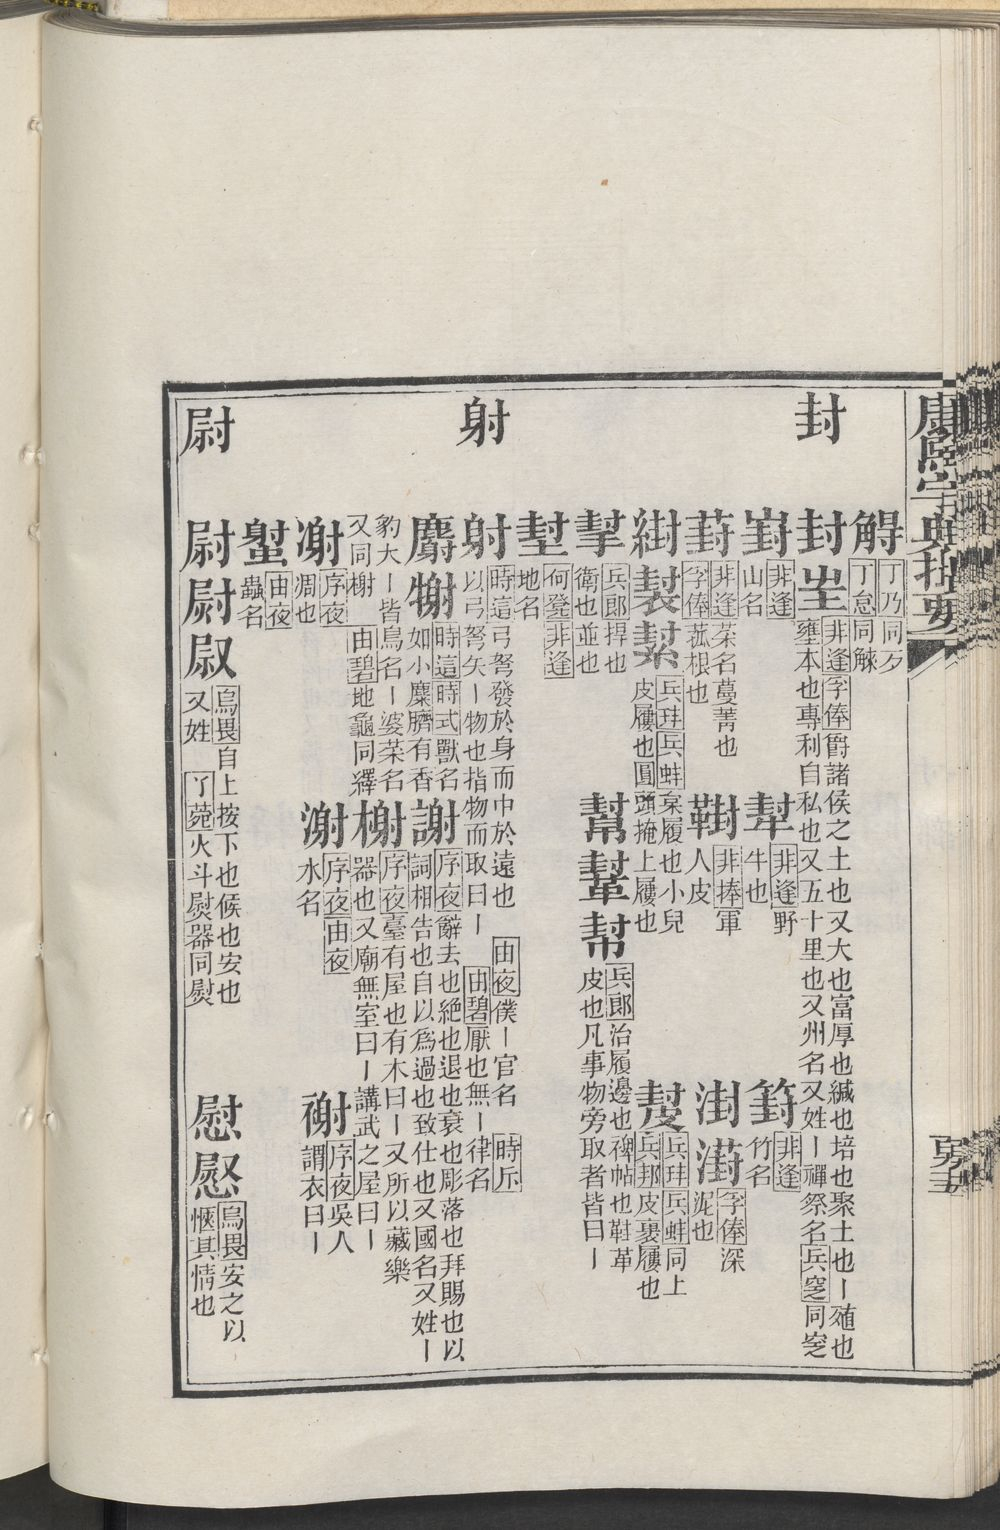 康熙字典撮要
封
射
尉
丁乃同歹
丁怠同觩
封 非逢孚俸爵諸侯之土也又大也富厚也緘也培也聚土也ー殖也
壅本也專利自私也又五十里也又州名又姓ー禪祭名兵窆同窆
崶 非逢
山名
犎 非逢野
牛也
篈 非逢
竹名
葑 非逢菜名蔓菁也
孚俸菰根也
鞤 非捧軍
人皮
湗 孚俸深
泥也
兵琫兵蚌枲履也小兒
皮屨也圓頭掩上屨也
兵琫兵蚌同上
兵邦皮裹屨也
兵郎捍也
衛也並也
幫幚幇 兵郎治履邊也裨帖也鞋革
皮也凡事物旁取者皆曰ー
何鼜非逢
地名
射 時這弓弩發於身而中於遠也 由夜僕ー官名 時斥
以弓弩矢ー物也指物而取曰ー 由碧厭也無ー律名
麝 時這時式獸名
如小麋臍有香
謝 序夜辭去也絕也退也衰也彫落也拜賜也以
詞相告也自以爲過也致仕也又國名又姓ー
豹大ー皆鳥名ー婆菜名
又同榭 由碧地龜同繹
榭 序夜臺有屋也有木曰ー又所以藏樂
器也又廟無室曰ー講武之屋曰ー
序夜
凋也
序夜由夜
水名
序夜吳人
謂衣曰ー
由夜
蟲名
尉 烏畏自上按下也候也安也
又姓 丫菀火斗熨器同熨
慰 烏畏安之以
愜其情也